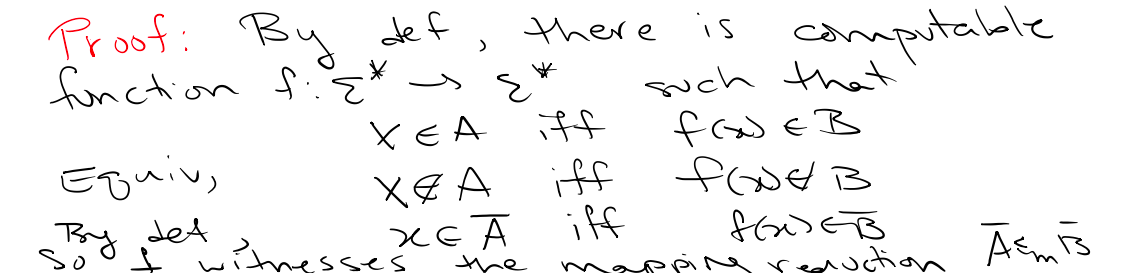 Proof: By def, there is computable
function f: Σ* → Σ* such that
x ∈ A iff f(x) ∈ B
Equiv, x ∉ A iff f(x) ∉ B
By def, x ∈ A̅ iff f(x) ∈ B̅
So f witnesses the mapping reduction A̅ ≤m B̅